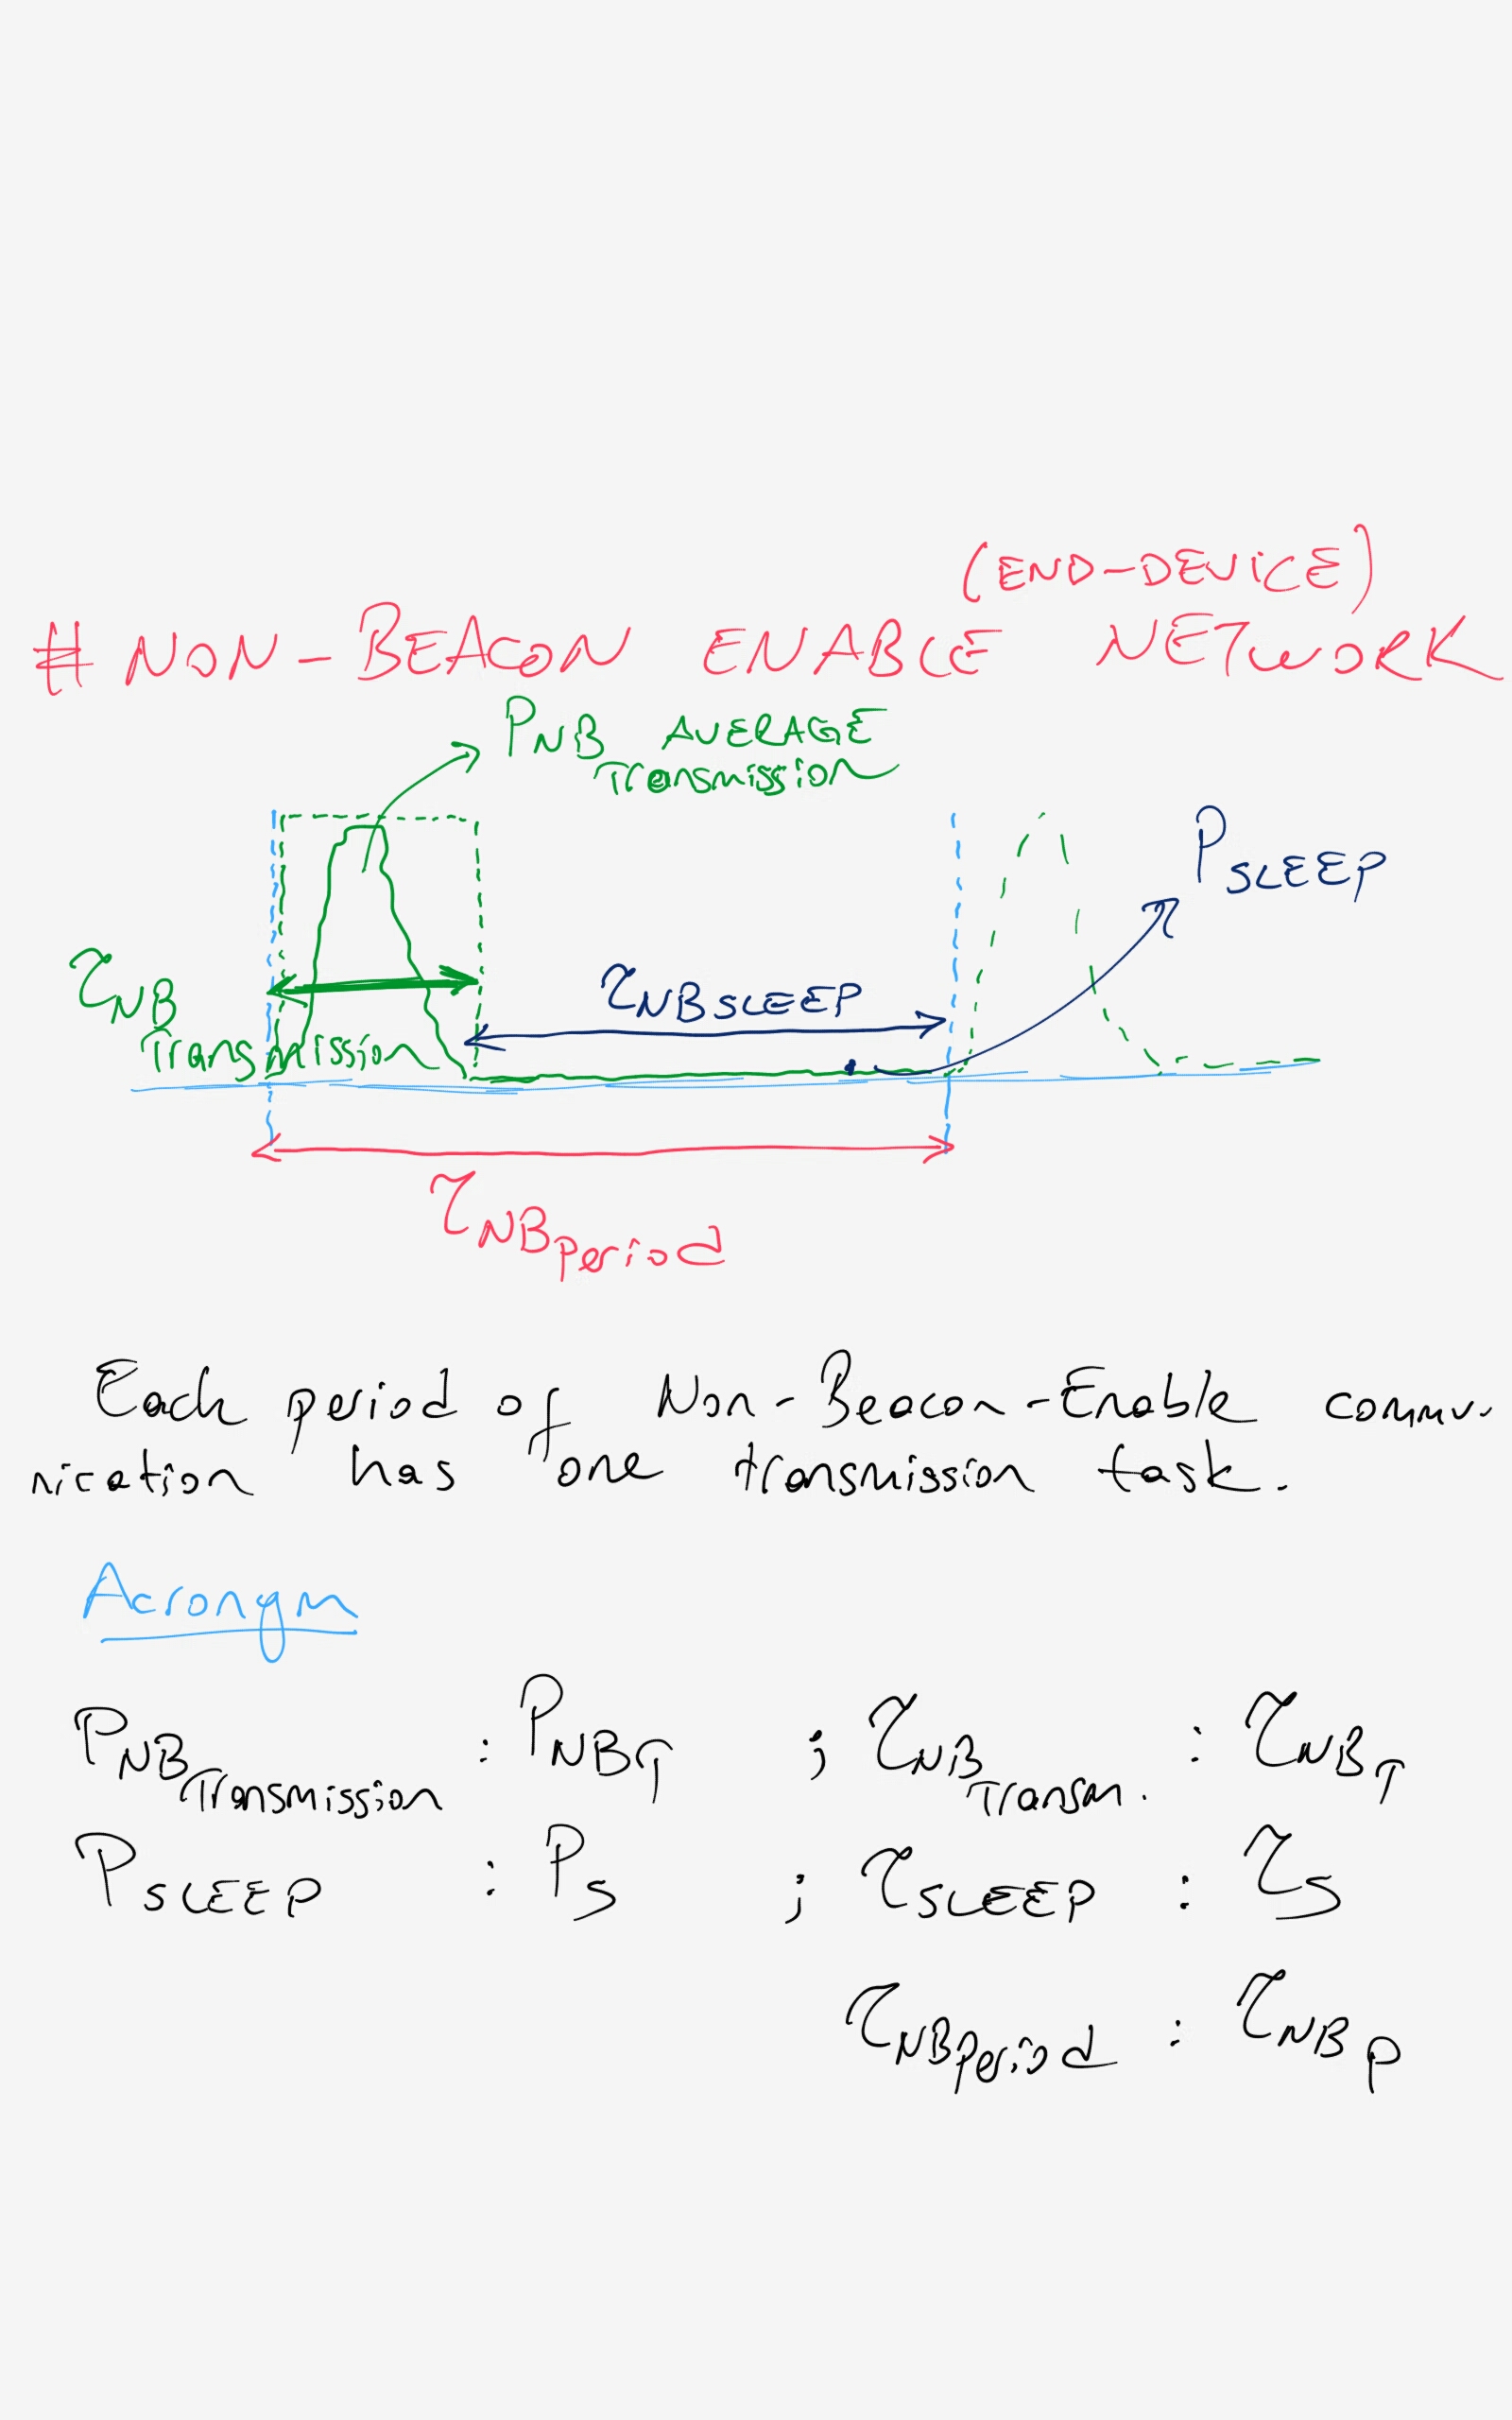 (END-DEVICE)
# NON-BEACON ENABLE NETWORK
P_NB AVERAGE
Transmission
P_SLEEP
τ_NB
Transmission
τ_NBSLEEP
τ_NBPeriod
Each period of Non-Beacon-Enable commu-
nication has one transmission task.
Acronym
P_NB Transmission : P_NBT ; τ_NB Transm. : τ_NBT
P_SLEEP : P_S ; τ_SLEEP : τ_S
τ_NBPeriod : τ_NBP